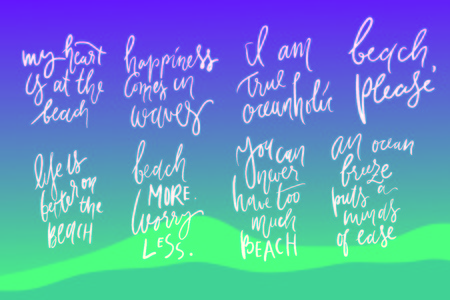 my heart
is at the
beach
happiness
comes in
waves
I am
true
oceanholic
beach,
please,
life is
better on
the
BEACH
beach
MORE.
worry
LESS.
You can
never
have too
much
BEACH
an ocean
breeze
puts a
minds
of ease